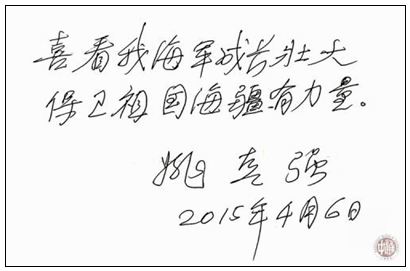 喜看我海军成长壮大
保卫祖国海疆有力量。
姚克强
2015年4月6日